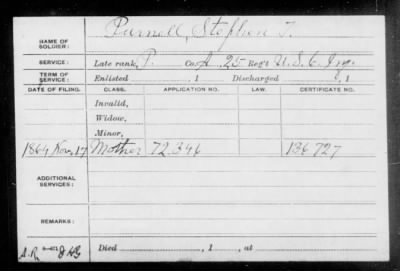 NAME OF SOLDIER: Purnell, Stephen T.
SERVICE: Late rank, P. Co. A, 25 Reg't U.S.C. Inf.
TERM OF SERVICE: Enlisted , 1 Discharged , 1
DATE OF FILING. CLASS. APPLICATION NO. LAW. CERTIFICATE NO.
Invalid,
Widow,
Minor,
1864 Nov 17 Mother 72.346 136727
ADDITIONAL SERVICES:
REMARKS:
Died , 1 , at